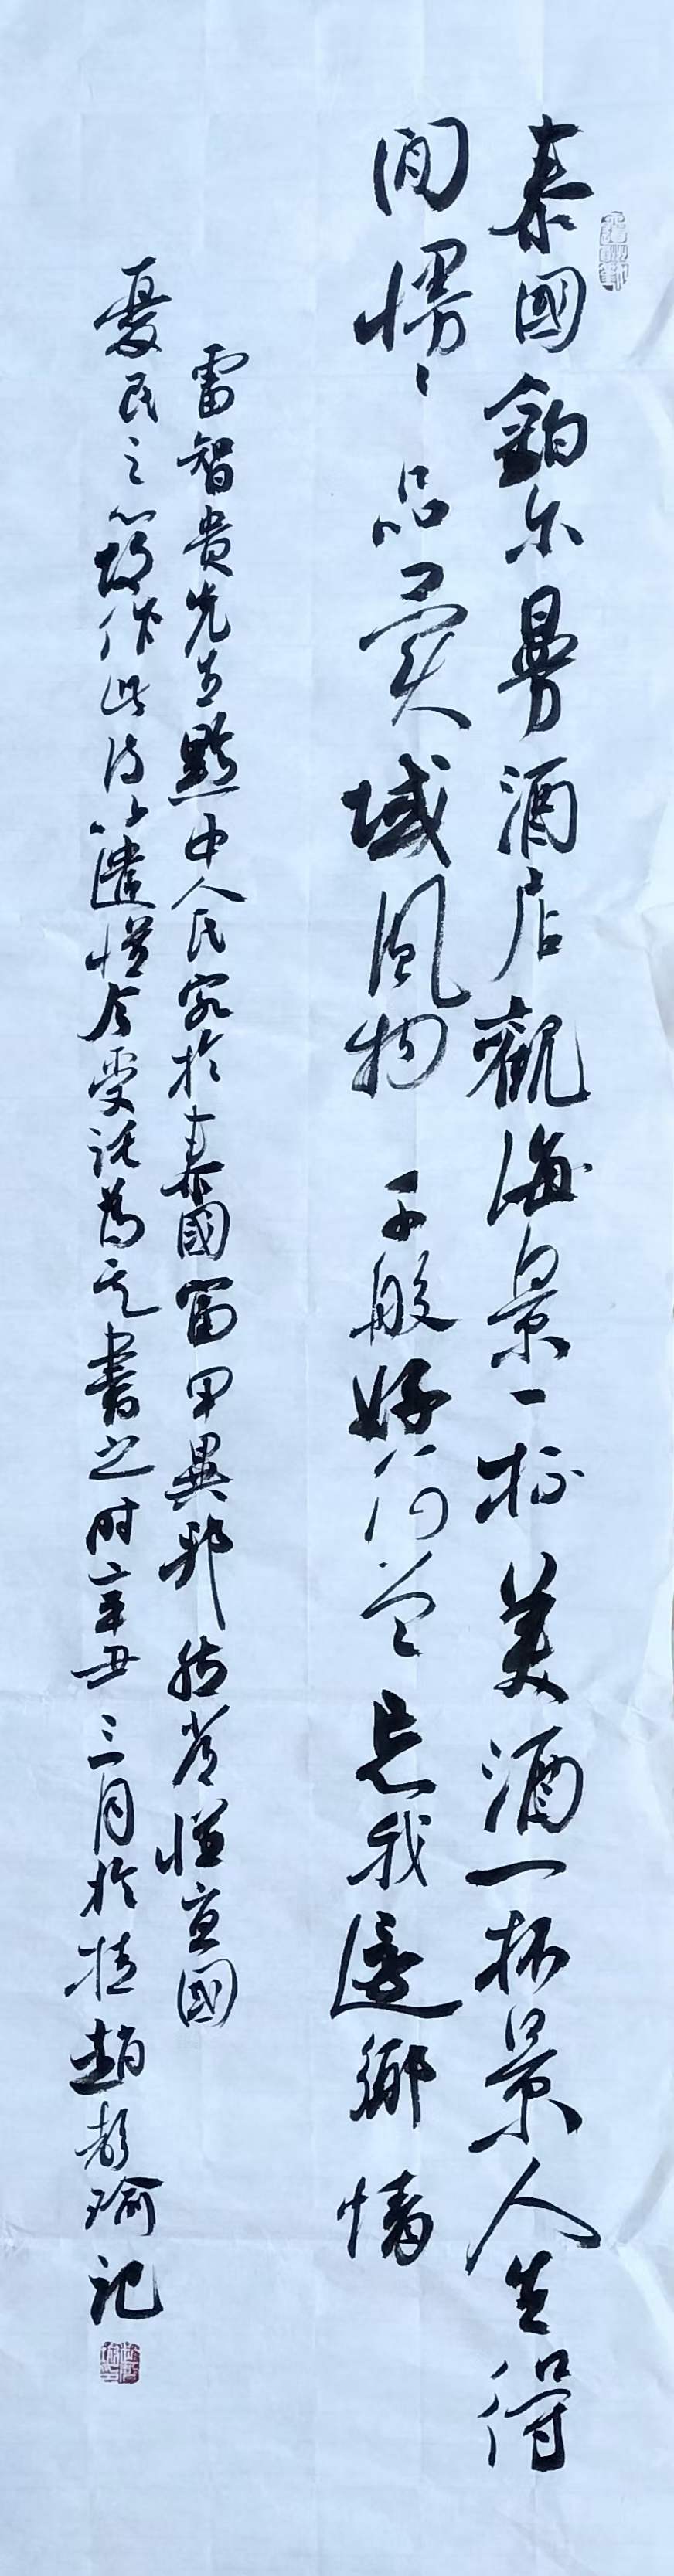 泰國鉑尔曼酒店觀海景一杯美酒一杯景人生得
閒愣々品異域風物千般好何曾忘我邊鄉情
雷智贵先生黔中人氏家於泰國富甲異邦然常懷憂國
憂民之心故作此诗以遣懷今受託為之書之时辛丑三月於桂趙彭瑜记